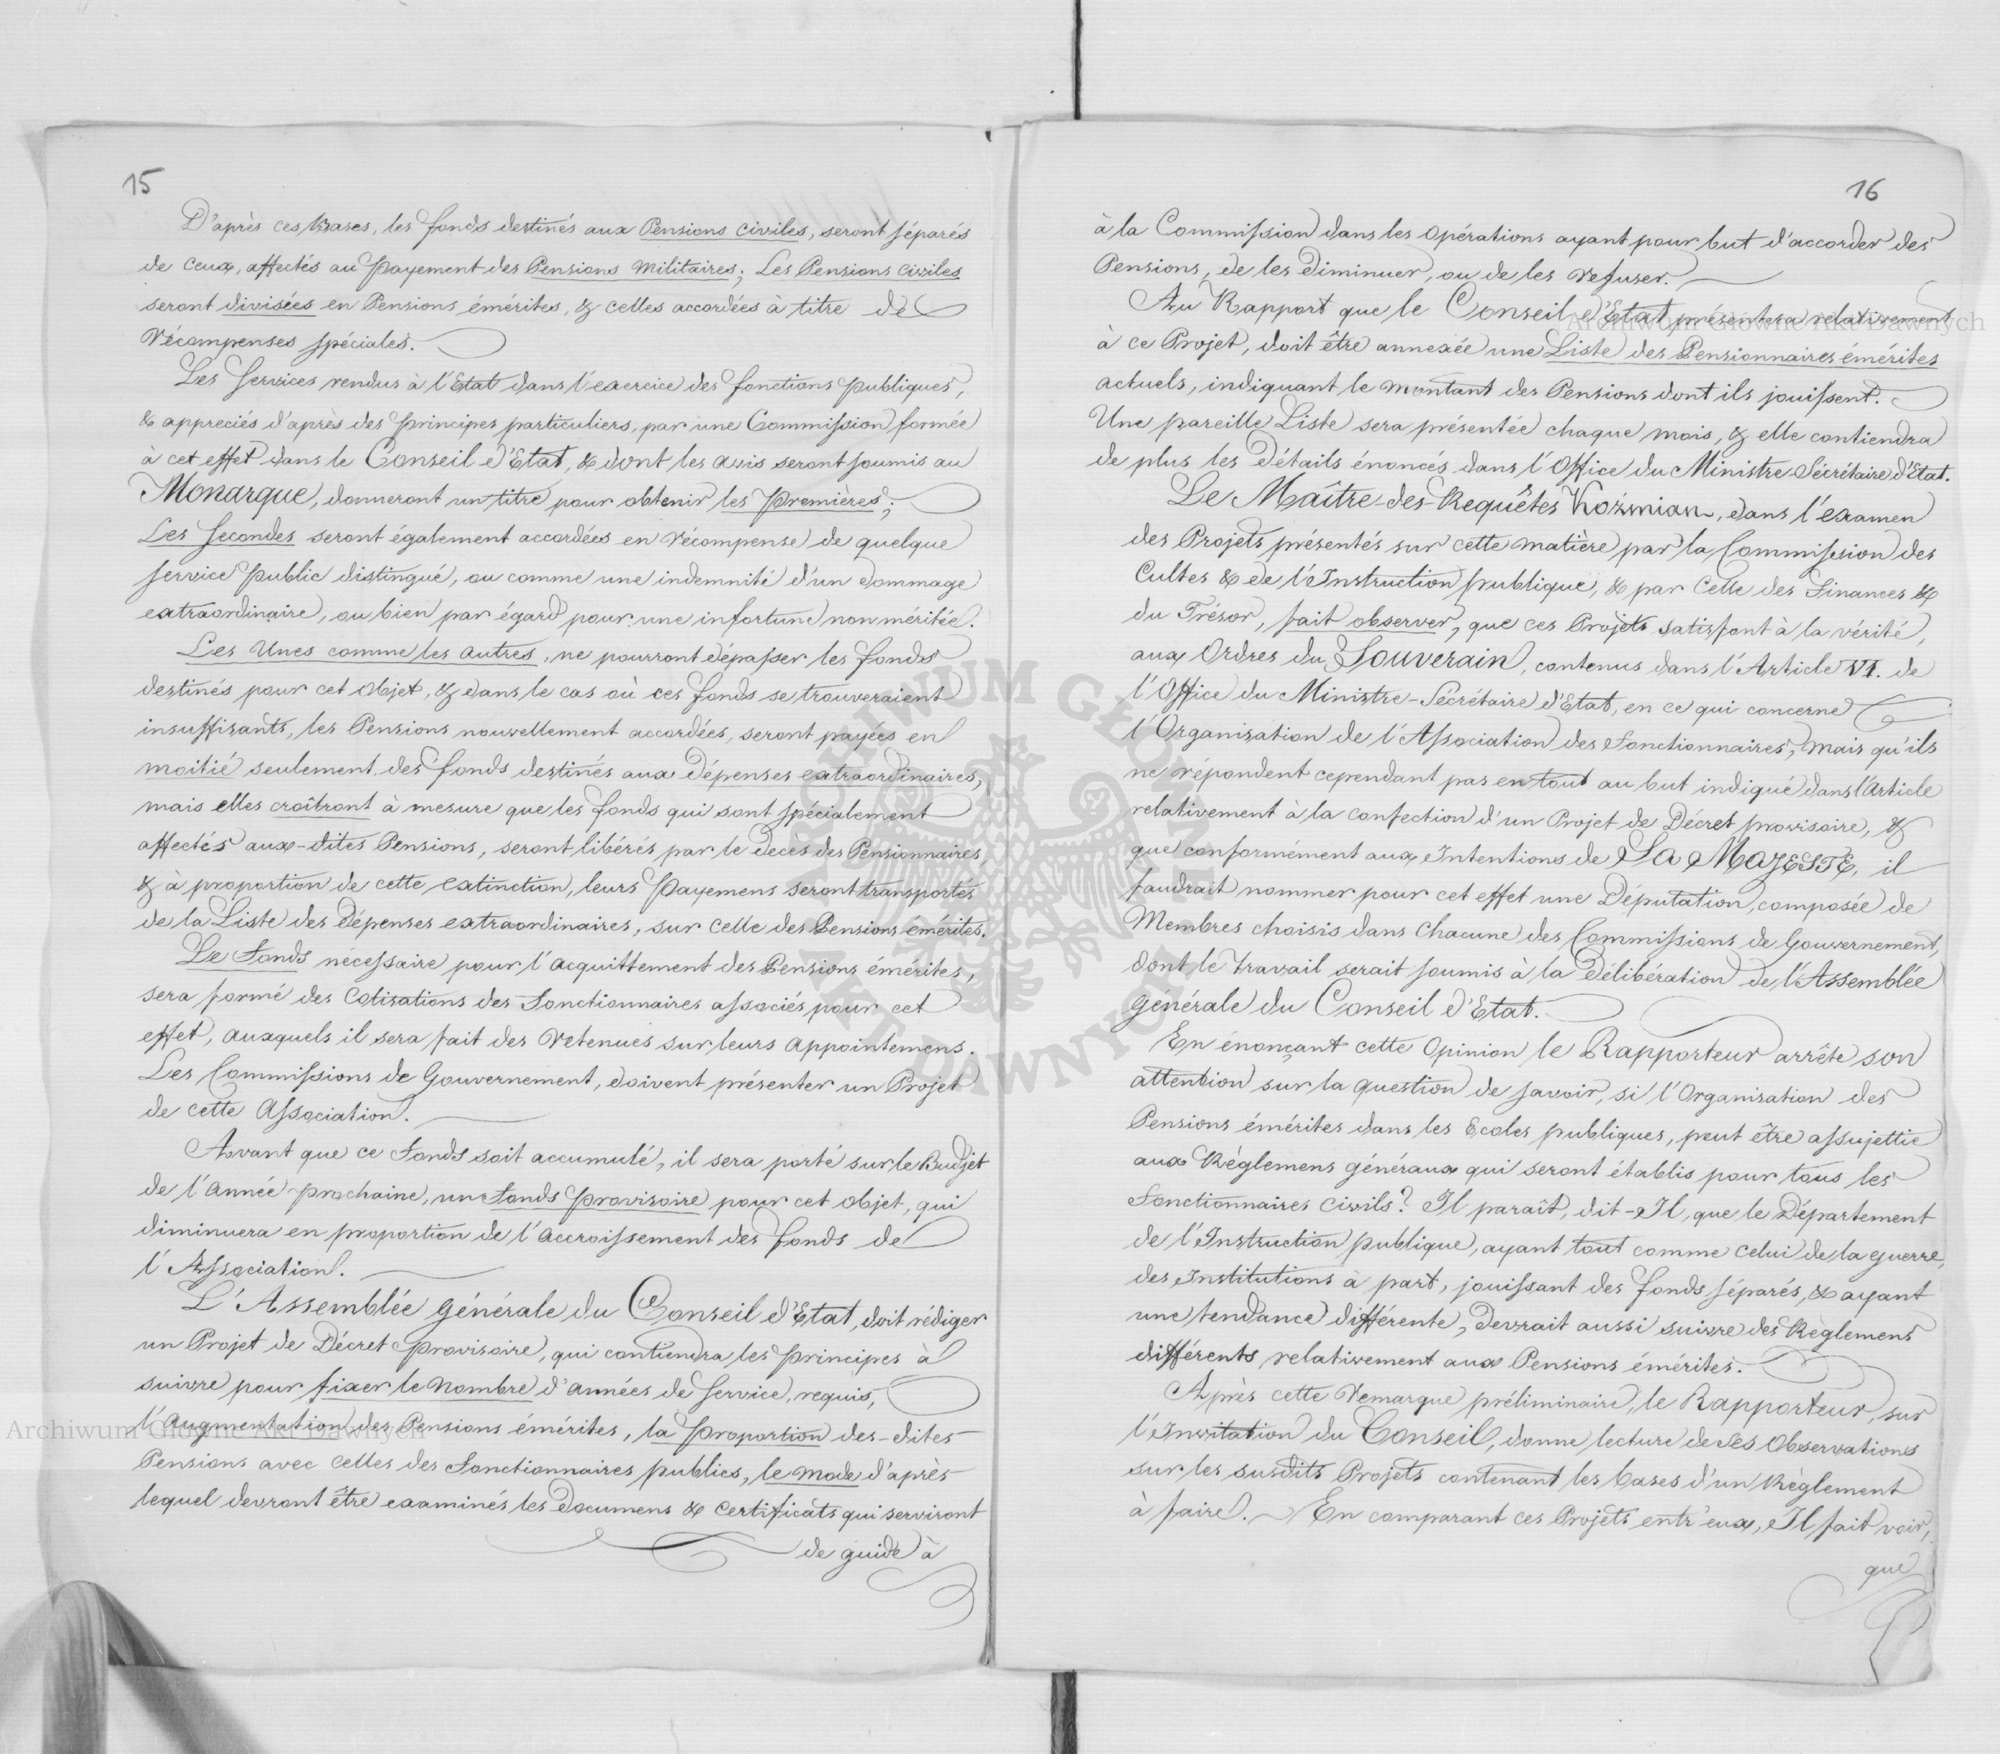 15
D'après ces Bases, les fonds destinés aux Pensions civiles, seront séparés
de ceux, affectés au payement des Pensions militaires; Les Pensions civiles
seront divisées en Pensions émérites, & celles accordées à titre de
récompenses spéciales.
Les services rendus à l'Etat dans l'exercice des fonctions publiques,
& appreciés d'après des principes particuliers, par une Commission formée
à cet effet dans le Conseil d'Etat, & dont les avis seront soumis au
Monarque, donneront un titre pour obtenir les premières;
Les secondes seront également accordées en récompense de quelque
service public distingué, ou comme une indemnité d'un dommage
extraordinaire, ou bien par égard pour une infortune non méritée.
Les Unes comme les autres, ne pourront dépasser les fonds
destinés pour cet objet, & dans le cas où ces fonds se trouveraient
insuffisants, les Pensions nouvellement accordées, seront payées en
moitié seulement des fonds destinés aux dépenses extraordinaires,
mais elles croîtront à mesure que les fonds qui sont spécialement
affectés aux-dites Pensions, seront libérés par le decès des Pensionnaires,
& à proportion de cette extinction, leurs payemens seront transportés
de la Liste des dépenses extraordinaires, sur celle des Pensions émérites.
Le Fonds necessaire pour l'acquittement des Pensions émérites,
sera formé des cotisations des Fonctionnaires associés pour cet
effet, auxquels il sera fait des retenues sur leurs appointemens.
Les Commissions de Gouvernement, doivent présenter un Projet
de cette Association.
Avant que ce Fonds soit accumulé, il sera porté sur le Budjet
de l'année prochaine, un Fonds provisoire pour cet objet, qui
diminuera en proportion de l'accroissement des fonds de
l'Association.
L'Assemblée générale du Conseil d'Etat, doit rédiger
un Projet de Décret provisoire, qui contiendra les principes à
suivre pour fixer le nombre d'années de service, requis,
l'augmentation des Pensions émérites, la proportion des-dites
Pensions avec celles des Fonctionnaires publics, le mode d'après
lequel devront être examinés les Documens & certificats qui serviront
de guide à
16
à la Commission dans les opérations ayant pour but d'accorder des
Pensions, de les diminuer, ou de les refuser.
Au Rapport que le Conseil d'Etat présentera relativement
à ce Projet, doit être annexée une Liste des Pensionnaires émérites
actuels, indiquant le montant des Pensions dont ils jouissent.
Une pareille Liste sera présentée chaque mois, & elle contiendra
de plus les Détails énoncés dans l'Office du Ministre Sécrétaire d'Etat.
Le Maître-des-Requêtes Koźmian, dans l'examen
des Projets présentés sur cette matière par la Commission des
Cultes & de l'Instruction publique, & par Celle des Finances &
du Trésor, fait observer, que ces Projets satisfont à la vérité,
aux Ordres du Souverain, contenus dans l'Article VI. de
l'Office du Ministre-Sécrétaire d'Etat, en ce qui concerne
l'Organisation de l'Association des Fonctionnaires, mais qu'ils
ne répondent cependant pas en tout au but indiqué dans l'Article
relativement à la confection d'un Projet de Décret provisoire, &
que conformément aux Intentions de SA MAJESTÉ, il
faudrait nommer pour cet effet une Députation, composée de
Membres choisis dans chacune des Commissions de Gouvernement,
dont le travail serait soumis à la Délibération de l'Assemblée
générale du Conseil d'Etat.
En énonçant cette Opinion le Rapporteur arrête son
attention sur la question de savoir, si l'Organisation des
Pensions émérites dans les Ecoles publiques, peut être assujettie
aux Règlemens généraux qui seront établis pour tous les
Fonctionnaires civils? Il paraît, dit-Il, que le Département
de l'Instruction publique, ayant tout comme celui de la guerre,
des Institutions à part, jouissant des fonds séparés, & ayant
une tendance différente, devrait aussi suivre des Règlemens
différents relativement aux Pensions émérites.
Après cette remarque préliminaire, le Rapporteur, sur
l'Invitation du Conseil, donne lecture de ses Observations
sur les susdits Projets contenant les bases d'un Règlement
à faire. En comparant ces Projets entr'eux, Il fait voir,
que
Archiwum Główne Akt Dawnych
Archiwum Główne Akt Dawnych
ARCHIWUM GŁÓWNE AKT DAWNYCH